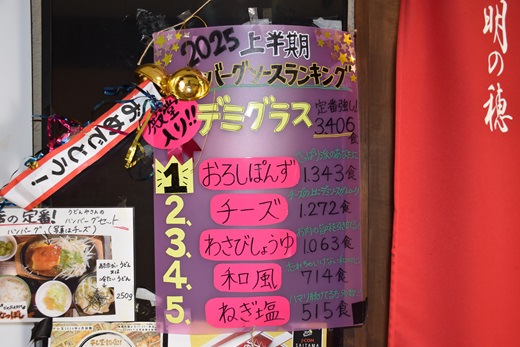 2025 上半期
ハンバーグソースランキング
殿堂
入り!!
デミグラス
定番強し!
3,406
食
おめでとう!
1 おろしぽんず 1,343食
2. チーズ 1,272食
3. わさびしょうゆ 1,063食
4. 和風 714食
5. ねぎ塩 515食
の定番!
うどんやさんの
ハンバーグセット
ハンバーグ(写真はチーズ)
あたたかいうどん
又は
冷たいうどん
250g
明の穂
SAITAMA